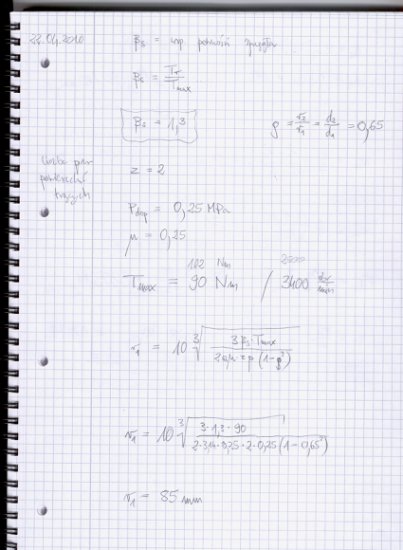 22.04.2010
βs = wsp. pewności sprzęgła
βs = Tr / Tmax
βs = 1,3
ρ = r2/r1 = d2/d1 = 0,65
liczba par
powierzchni
trących
z = 2
Pdop = 0,25 MPa
μ = 0,25
102 Nm
Tmax = 90 Nm / 3400 obr/min
r1 = 10 ∛(3βs·Tmax / 2πμ·z·p(1-ρ³))
r1 = 10 ∛(3·1,3·90 / 2·3,14·0,25·2·0,25(1-0,65³))
r1 = 85 mm